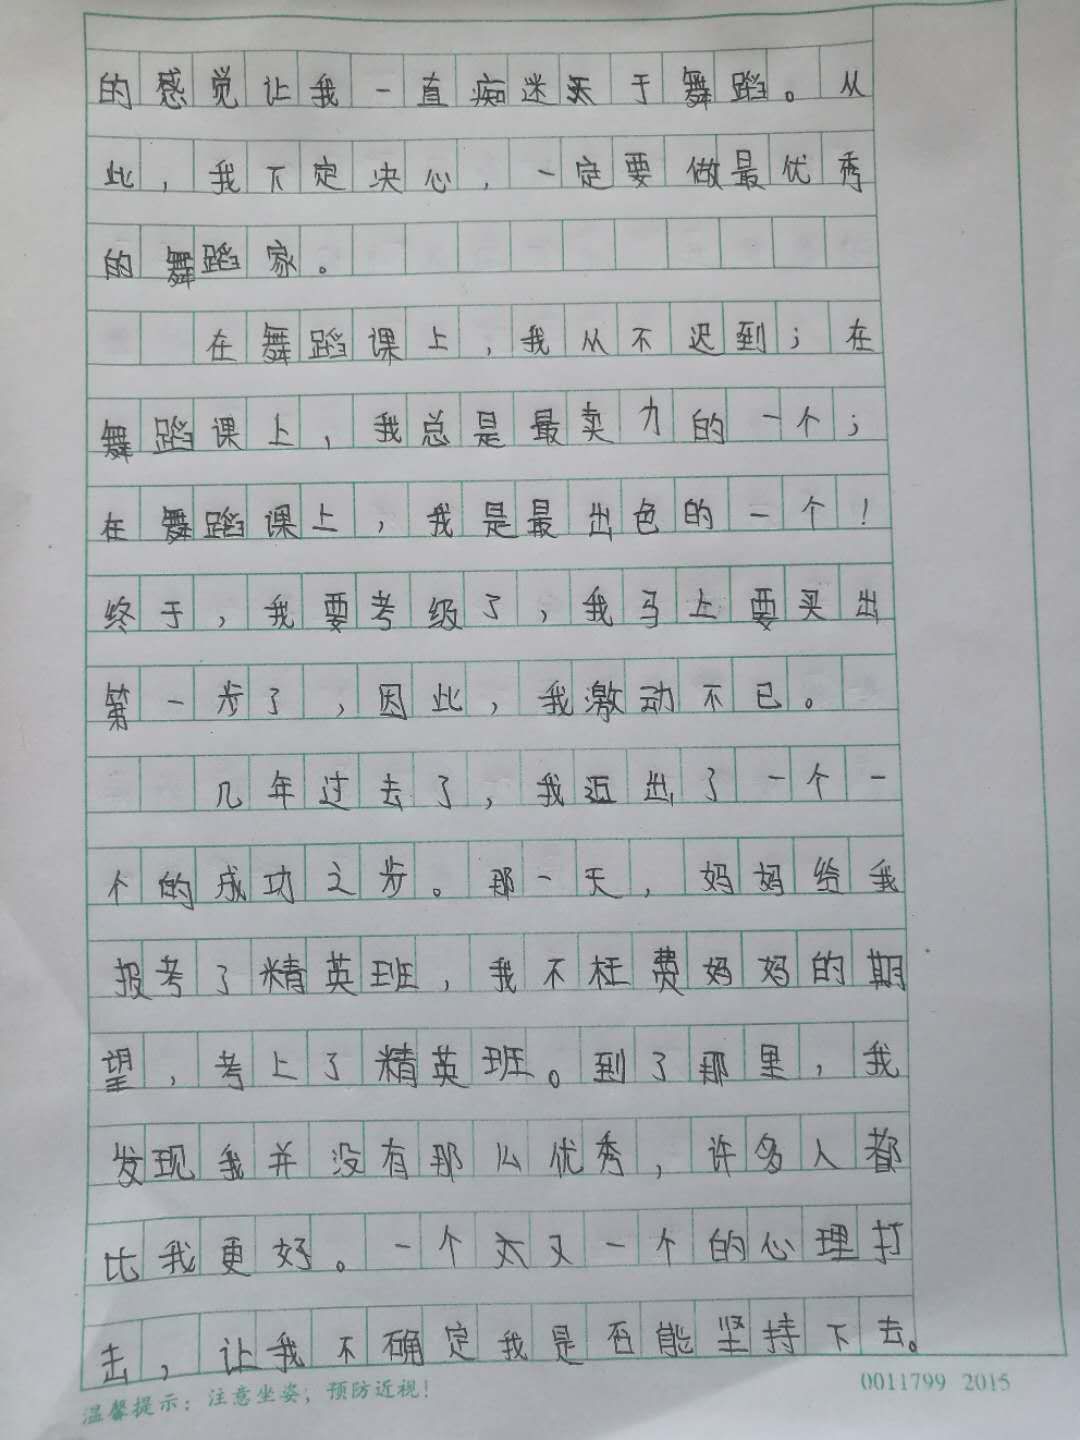 的感觉让我一直痴迷于舞蹈。从
此，我下定决心，一定要做最优秀
的舞蹈家。
在舞蹈课上，我从不迟到；在
舞蹈课上，我总是最卖力的一个；
在舞蹈课上，我是最出色的一个！
终于，我要考级了，我马上要买出
第一步了，因此，我激动不已。
几年过去了，我迈出了一个一
个的成功之步。那一天，妈妈给我
报考了精英班，我不枉费妈妈的期
望，考上了精英班。到了那里，我
发现我并没有那么优秀，许多人都
比我更好。一个又一个的心理打
击，让我不确定我是否能坚持下去。
温馨提示：注意坐姿；预防近视！
0011799 2015